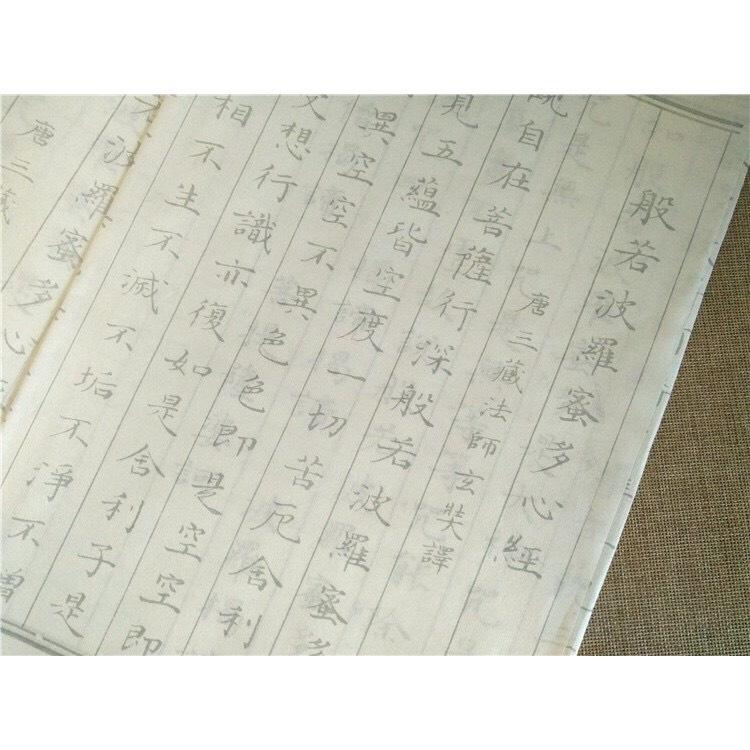 般若波羅蜜多心經
唐三藏法師玄奘譯
觀自在菩薩行深般若波羅蜜多
見五蘊皆空度一切苦厄舍利
異空空不異色色即是空空即
受想行識亦復如是舍利子是
相不生不滅不垢不淨不增
若波羅蜜多心
唐三藏